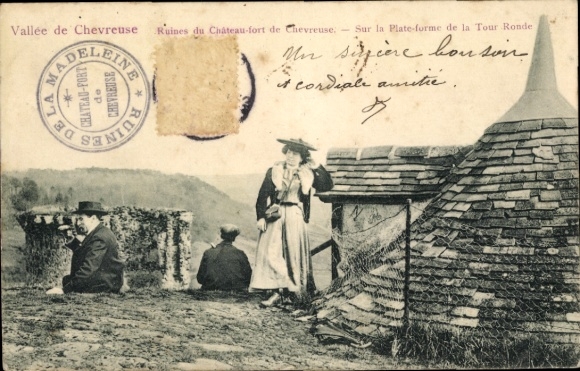 Vallée de Chevreuse
Ruines du Château-fort de Chevreuse. — Sur la Plate-forme de la Tour Ronde
RUINES DE LA MADELEINE
CHATEAU-FORT
de
CHEVREUSE
Un sincère bonjour
et cordiale amitié.